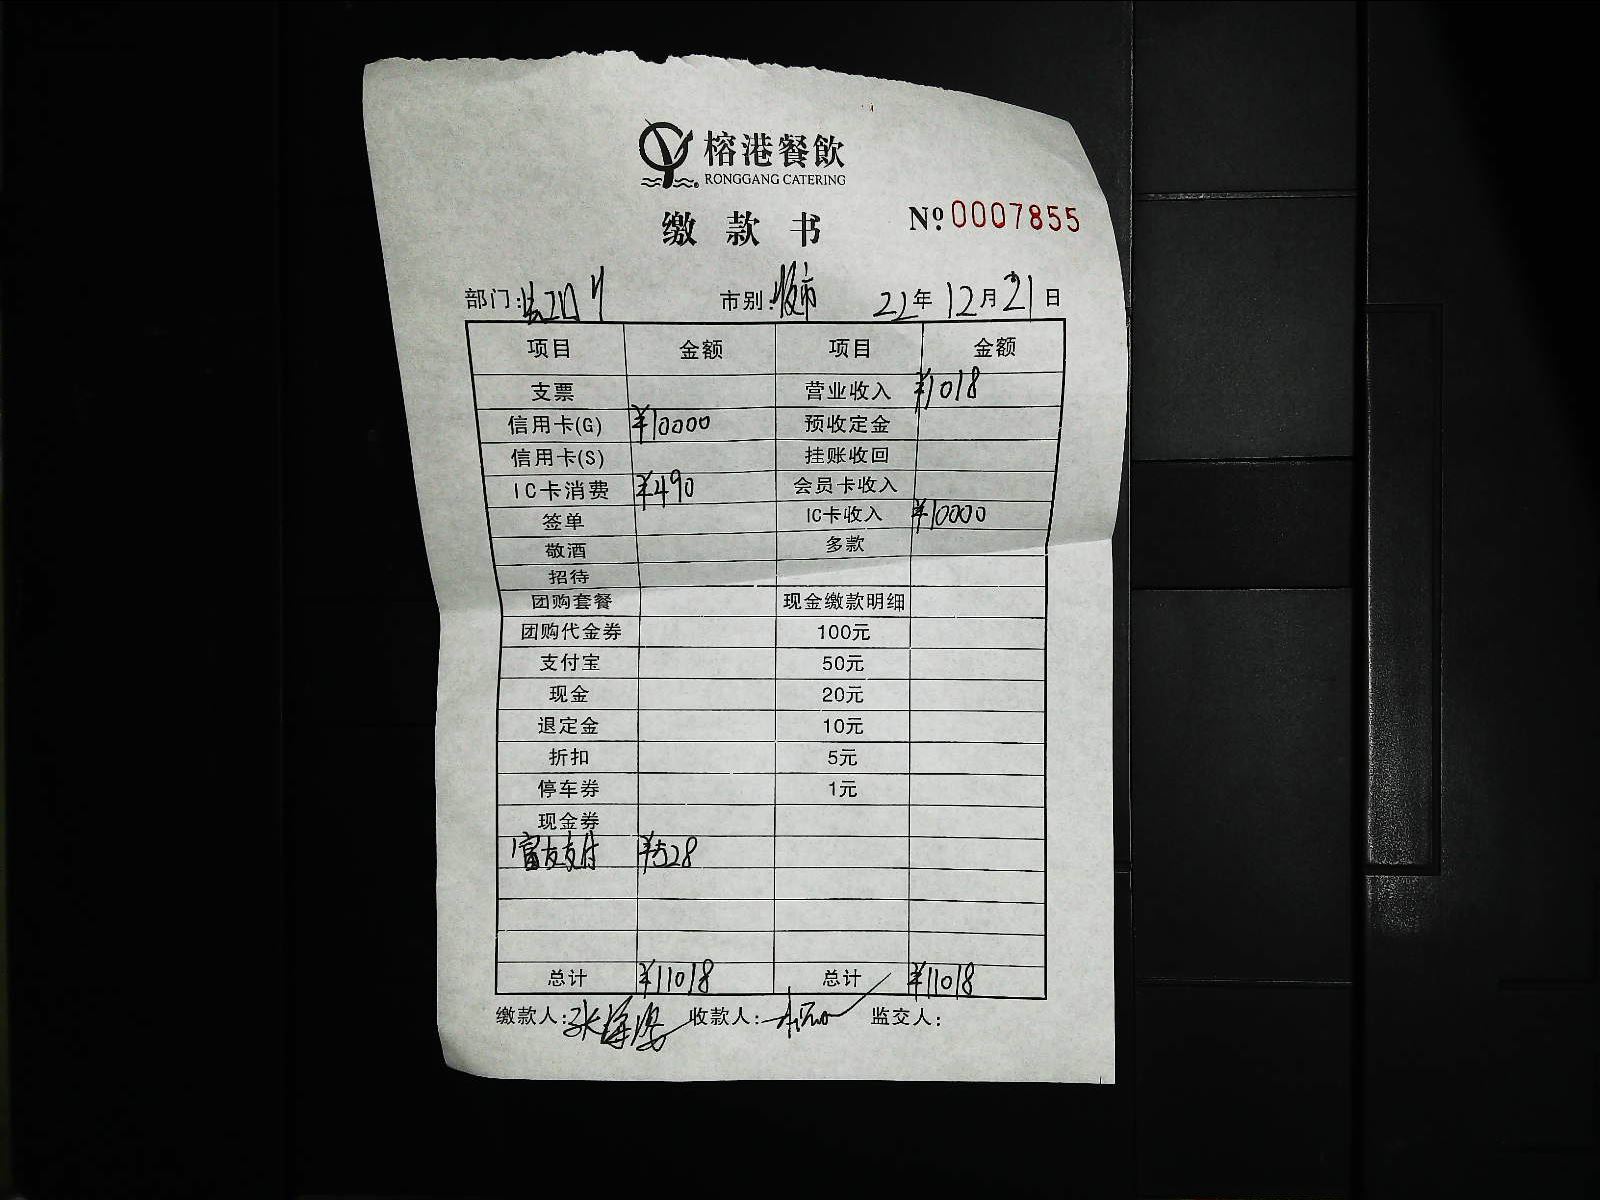 榕港餐飲
RONGGANG CATERING
缴款书 Nº 0007855
部门: 市别: 夜市 21年12月21日
项目 金额 项目 金额
支票 营业收入 ¥1018
信用卡(G) ¥10000 预收定金
信用卡(S) 挂账收回
IC卡消费 ¥490 会员卡收入
签单 IC卡收入 ¥10000
敬酒 多款
招待
团购套餐 现金缴款明细
团购代金券 100元
支付宝 50元
现金 20元
退定金 10元
折扣 5元
停车券 1元
现金券
富友支付 ¥528
总计 ¥11018 总计 ¥11018
缴款人: 收款人: 监交人: